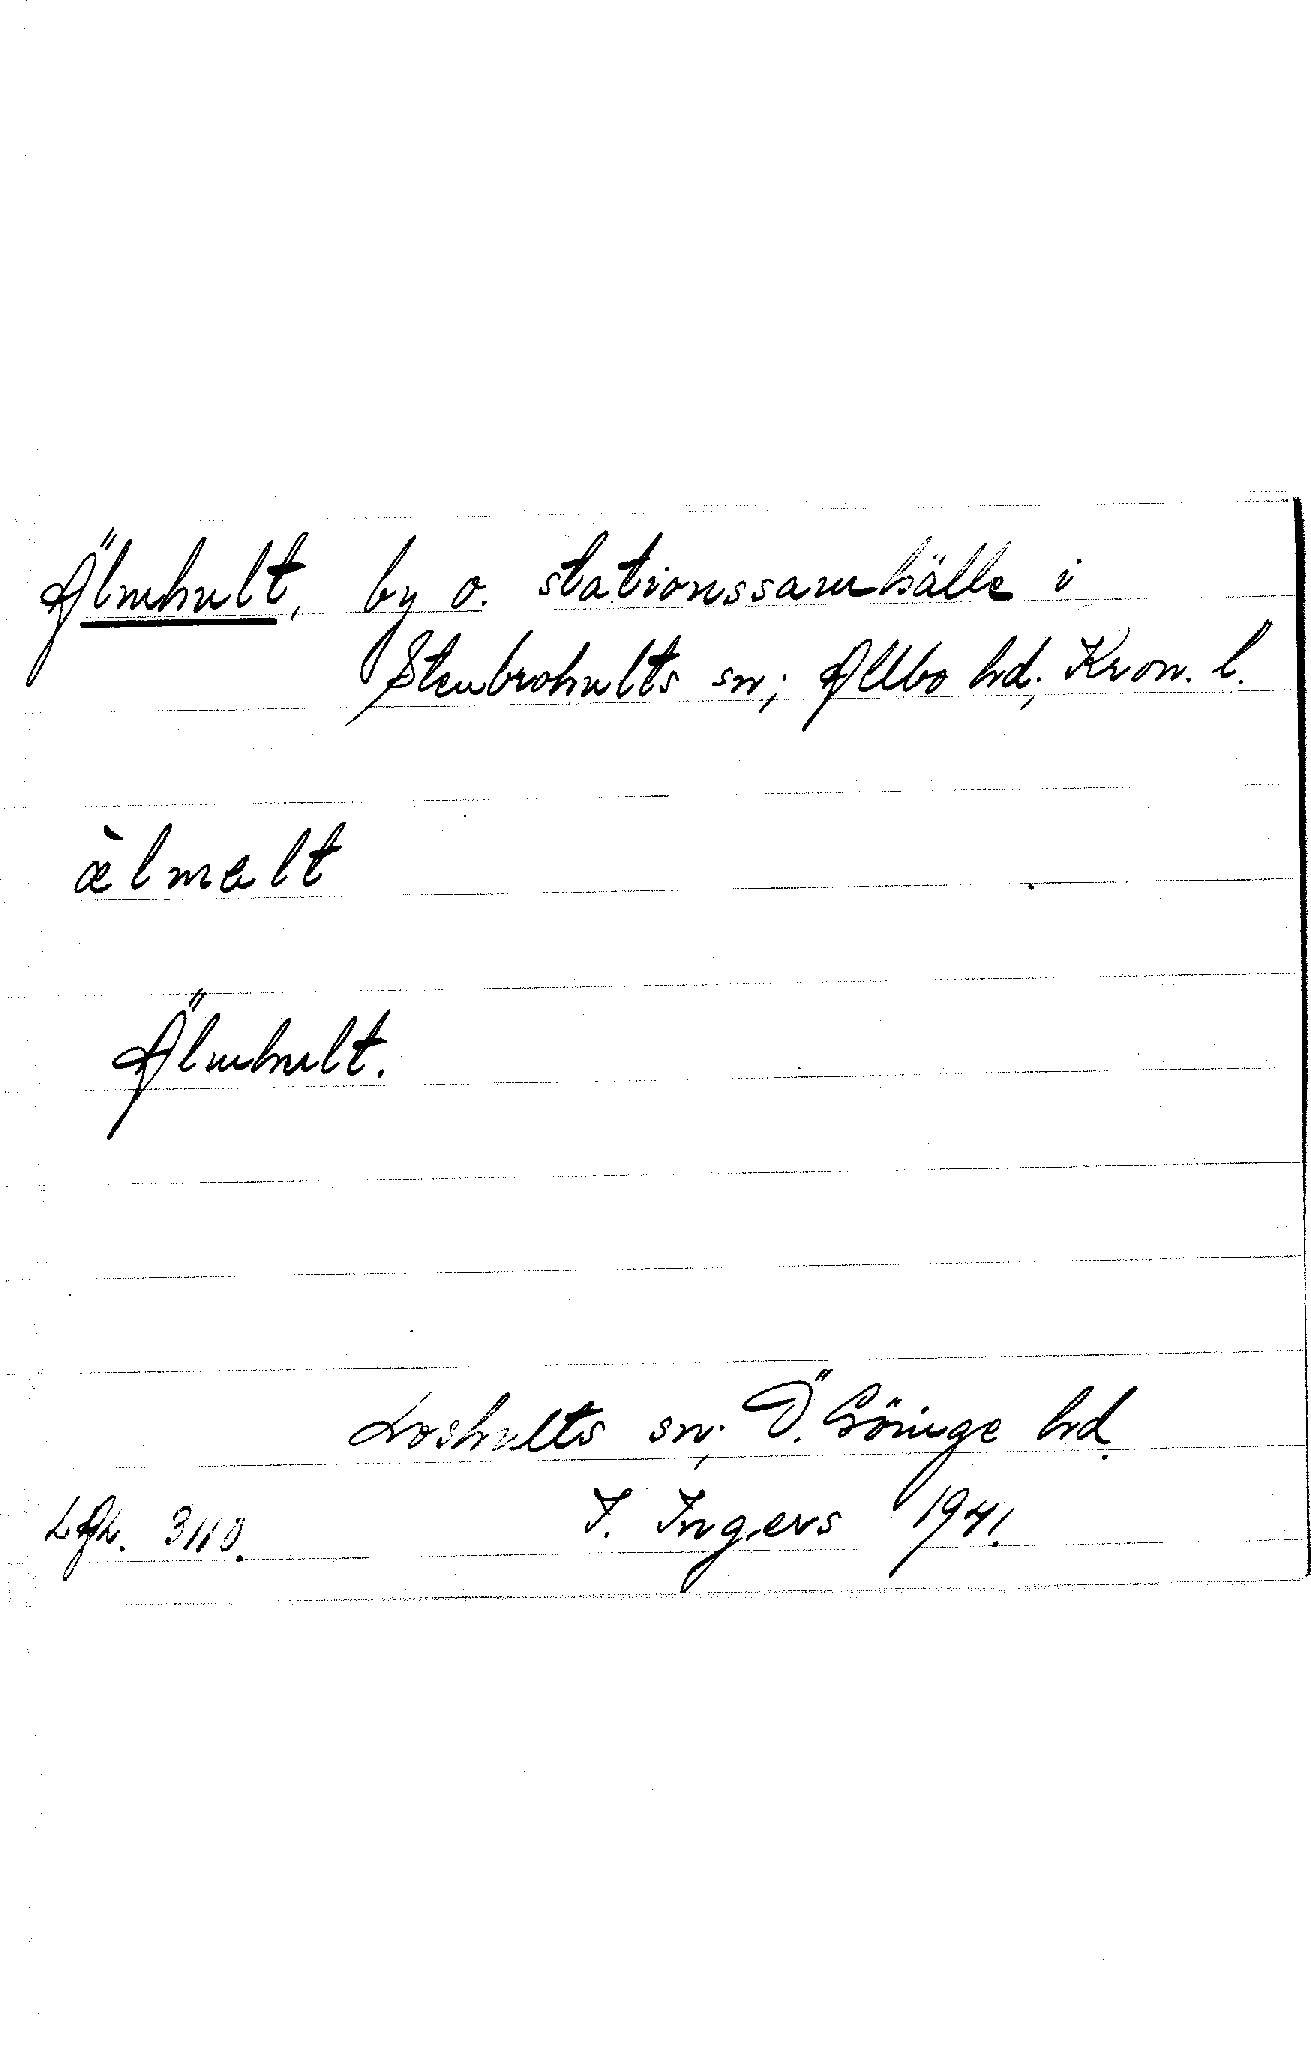 Älmhult, by o. stationssamhälle i
Stenbrohults sn; Allbo hd; Kron. l.
æ̀lmalt
Älmhult.
Loshults sn; Ö. Göinge hd.
I. Ingers 1941.
LAL. 3110.